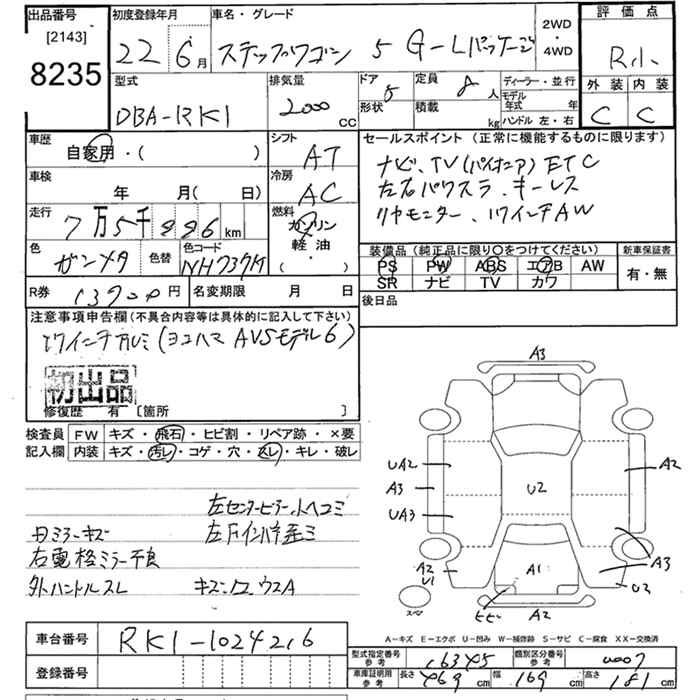 出品番号 初度登録年月 車名・グレード 2WD・4WD 評価点
[2143]
8235 22 6月 ステップワゴン 5 G-Lパッケージ
外装 内装
C C
型式 排気量 ドア 定員 ディーラー・並行
DBA-RK1 2000 CC 形状 5 8人 積載 kg モデル年式 年 ハンドル 左・右
車歴 シフト セールスポイント(正常に機能するものに限ります)
自家用・( ) AT ナビ、TV(パイオニア)ETC
車検 冷房 左右パワスラ、キーレス
年 月 日 AC リヤモニター、17インチAW
走行 燃料
7万5千886km ガソリン
軽油
( ・ )
色 色替 色コード
ガンメタ NH737M
装備品(純正品に限り○をつけてください) 新車保証書
PS PW ABS エアB AW 有・無
SR ナビ TV カワ
R券 13900円 名変期限 月 日
後日品
注意事項申告欄(不具合内容等は具体的に記入して下さい)
17インチアルミ(ヨコハマ AVSモデル6)
初出品
修復歴 有[箇所 ]
検査員 FW キズ・飛石・ヒビ割・リペア跡・×要
記入欄 内装 キズ・汚レ・コゲ・穴・スレ・キレ・破レ
左センターピラー小ヘコミ
左Fインパネ歪ミ
右電格ミラー不良
外ハンドルスレ
A3
UA2 A2
A3 U2
UA3
A2 A3
U1 A1 U2
スペア ヒビ A2
A-キズ E-エクボ U-凹み W-補修跡 S-サビ C-腐食 XX-交換済
車台番号 RK1-1024216
登録番号
型式指定番号 参考 16345 類別区分番号 参考 0007
車庫証明用 参考 長さ 469cm 幅 169cm 高さ 181cm